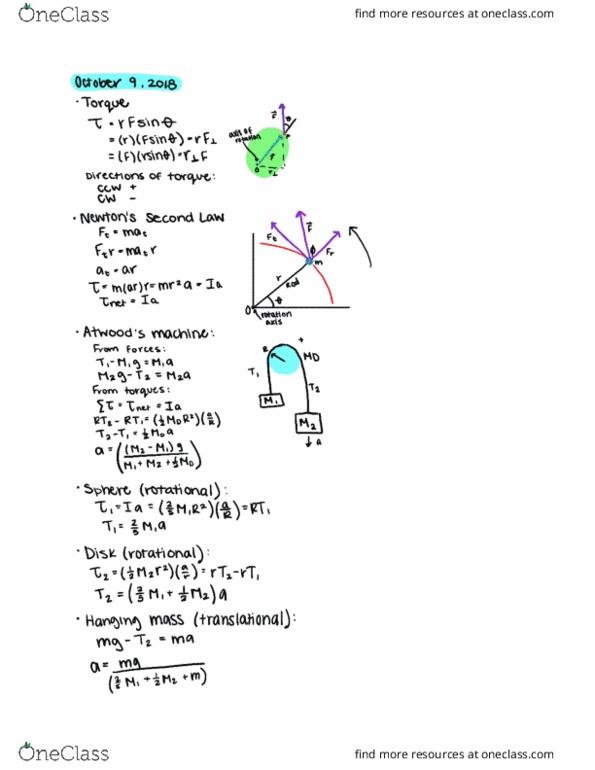 OneClass
find more resources at oneclass.com
October 9, 2018
· Torque
τ = rFsinθ
= (r)(Fsinθ) = rF⊥
= (F)(rsinθ) = r⊥F
Directions of torque:
CCW +
CW −
axis of rotation
F
θ
r
r
r⊥
0
· Newton's Second Law
Ft = mat
Ftr = matr
at = ar
τ = m(ar)r = mr²a = Ia
τnet = Ia
Ft
F
Fr
ϕ
m
r
rod
θ
0
rotation axis
· Atwood's machine:
From forces:
T₁ - M₁g = M₁a
M₂g - T₂ = M₂a
From torques:
Στ = τnet = Ia
RT₂ - RT₁ = (½MDR²)(a/R)
T₂ - T₁ = ½MDa
a = ((M₂ - M₁)g / M₁ + M₂ + ½MD)
R
+
MD
T₁
T₂
M₁
M₂
↓ a
· Sphere (rotational):
τ₁ = Ia = (⅖M₁R²)(a/R) = RT₁
T₁ = ⅖M₁a
· Disk (rotational):
τ₂ = (½M₂r²)(a/r) = rT₂ - rT₁
T₂ = (⅖M₁ + ½M₂)a
· Hanging mass (translational):
mg - T₂ = ma
a = mg / (⅖M₁ + ½M₂ + m)
OneClass
find more resources at oneclass.com